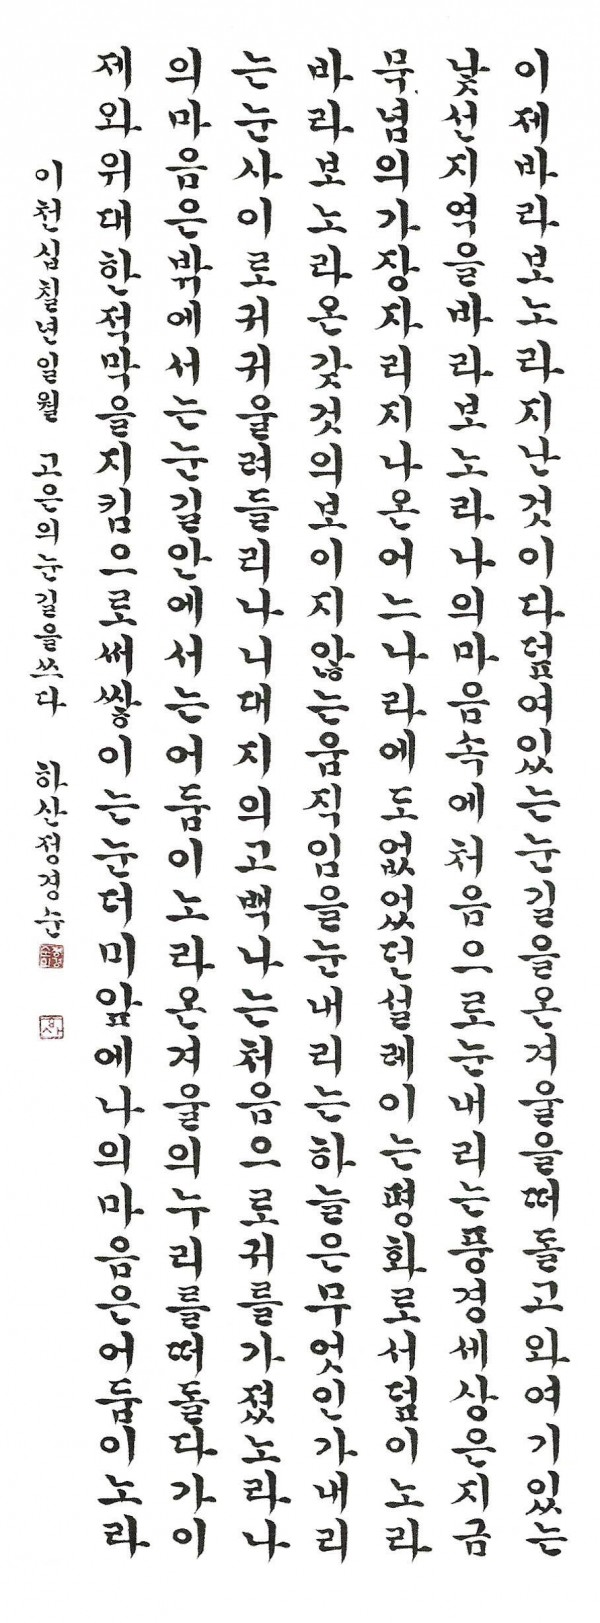 이제바라보노라지난것이다덮여있는눈길을온겨울을떠돌고와여기있는
낯선지역을바라보노라나의마음속에처음으로눈내리는풍경세상은지금
묵념의가장자리지나온어느나라에도없었던설레이는평화로서덮이노라
바라보노라온갖것의보이지않는움직임을눈내리는하늘은무엇인가내리
는눈사이로귀귀울려들리나니대지의고백나는처음으로귀를가졌노라나
의마음은밖에서는눈길안에서는어둠이노라온겨울의누리를떠돌다가이
제와위대한적막을지킴으로써쌓이는눈더미앞에나의마음은어둠이노라
이천십칠년일월 고은의눈길을쓰다 하산정경순